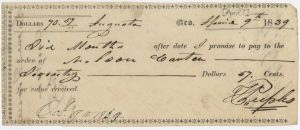 DOLLARS 70.57 Augusta Geo. April 9th 1839
Six Months after date I promise to pay to the
order of Nelson Carter
Seventy Dollars 57 Cents.
for value received.
Peeples